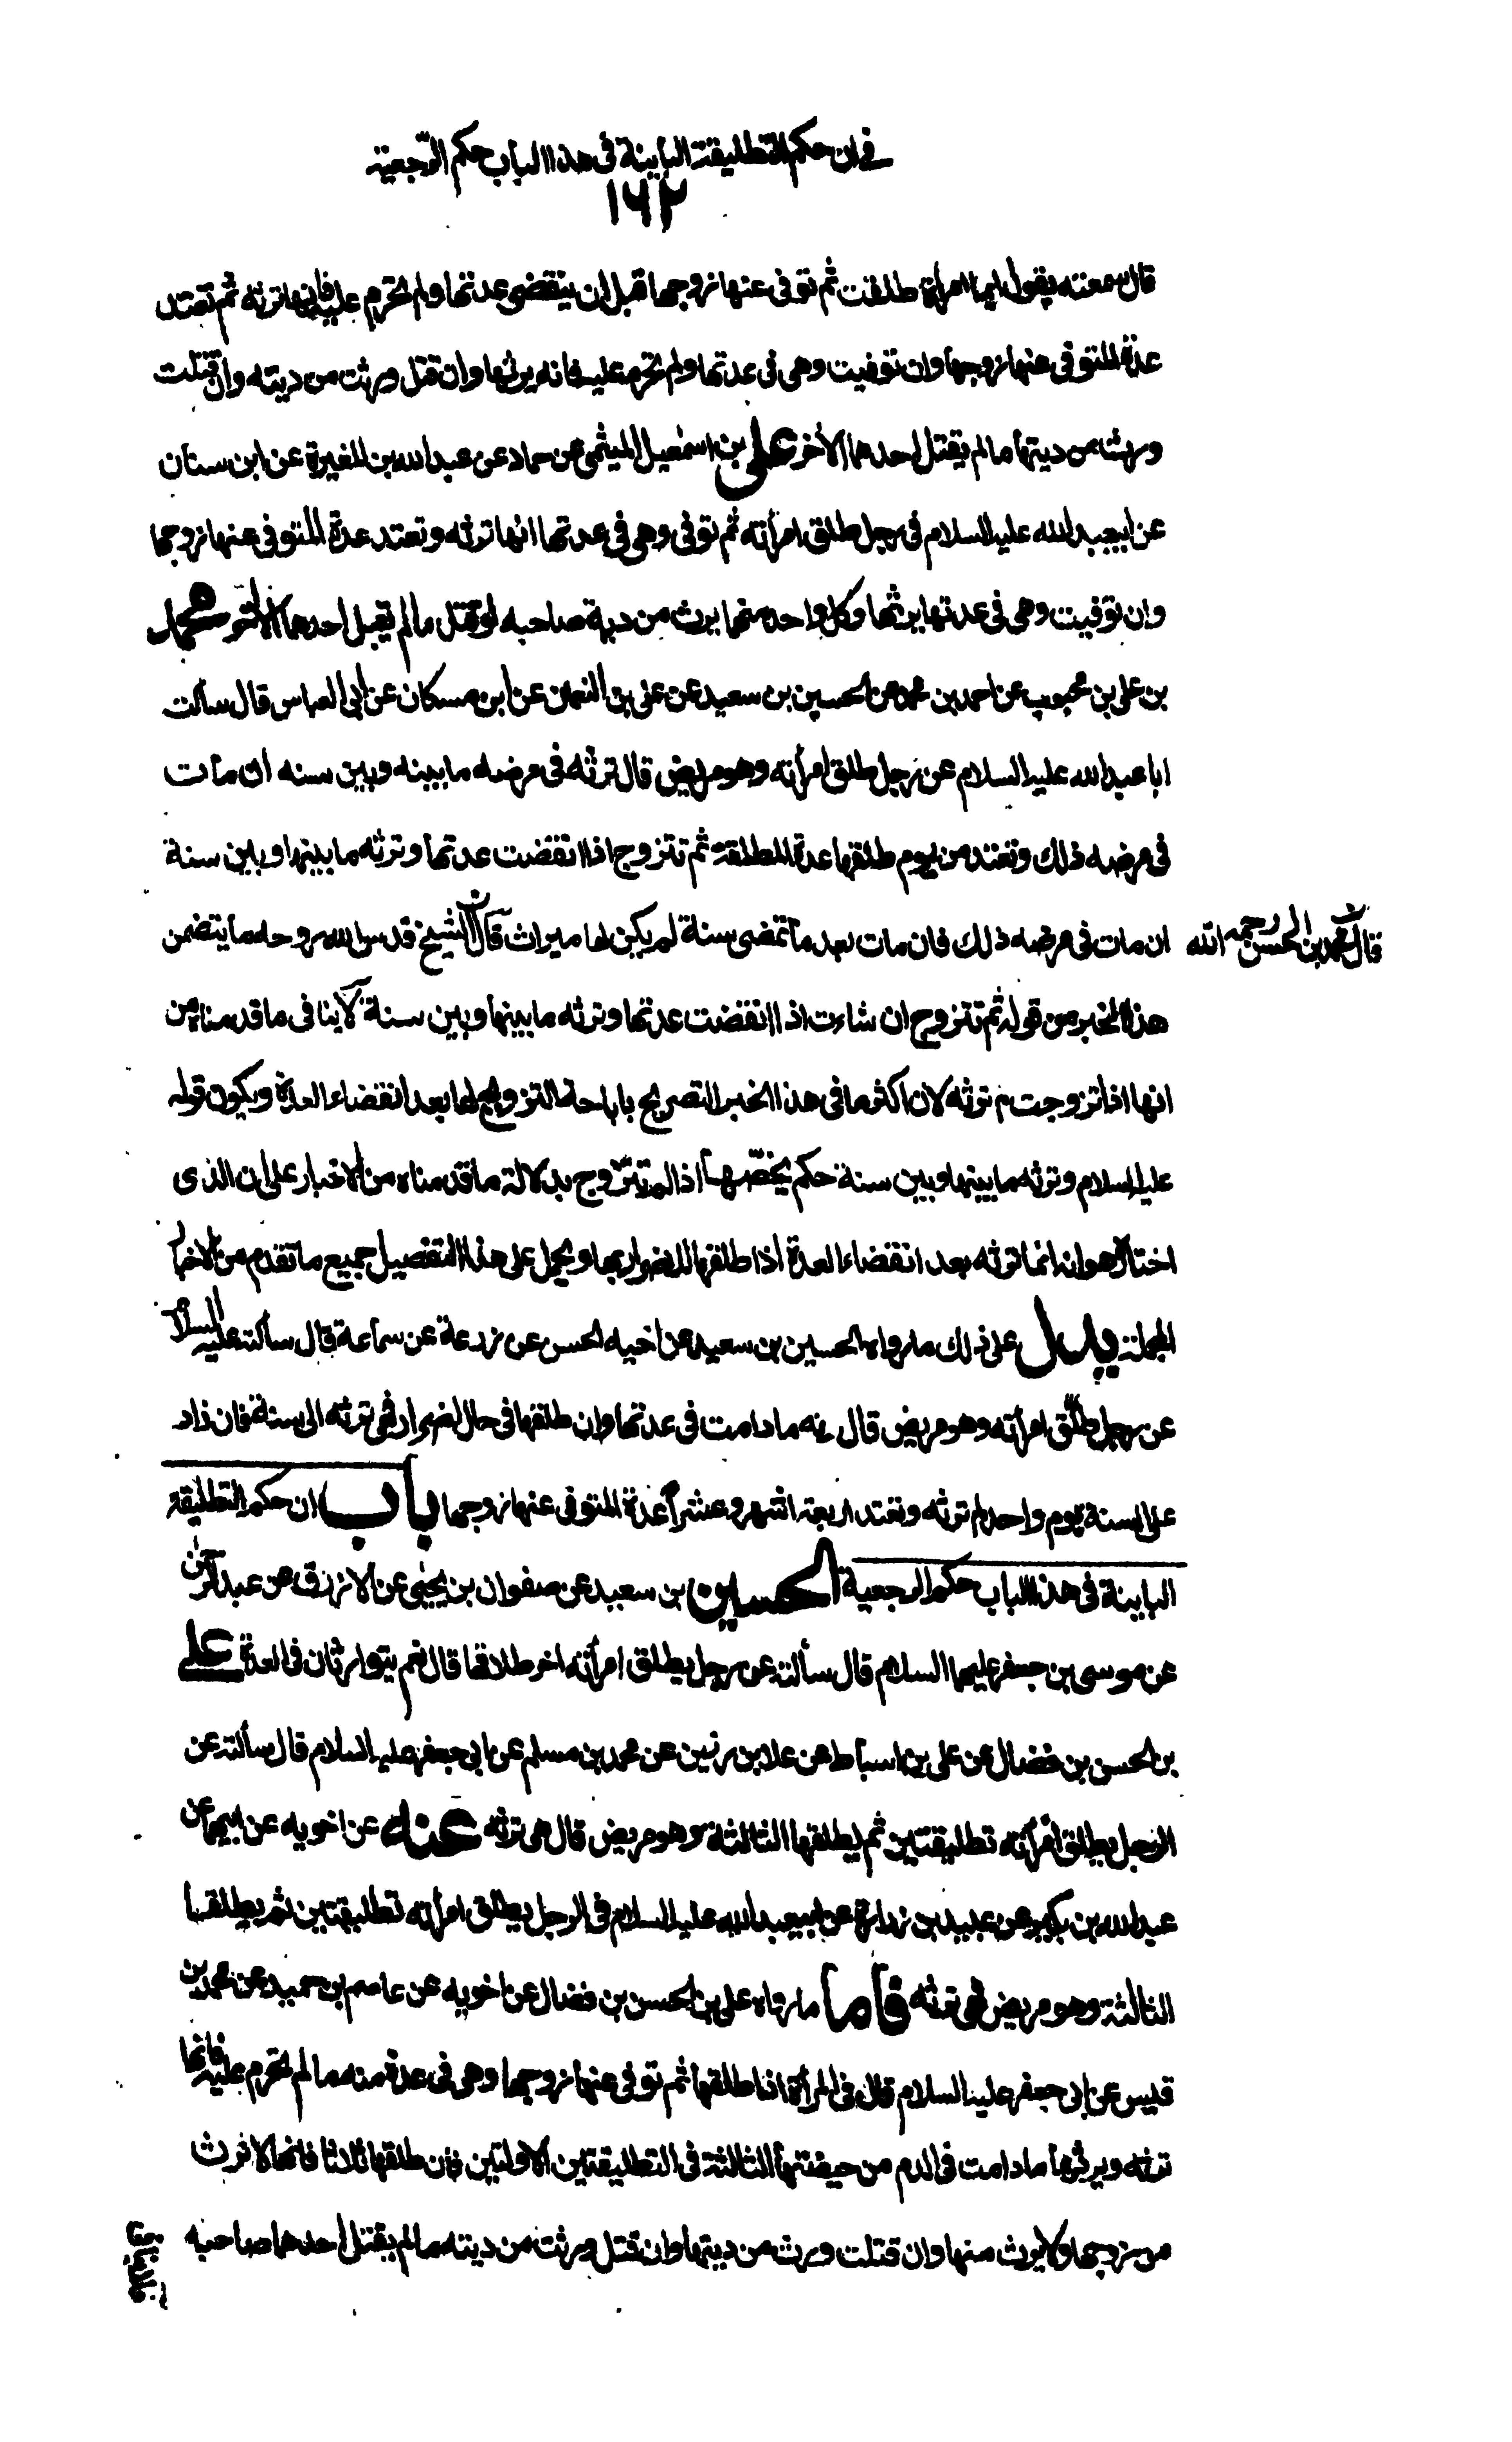 في ان حكم التطليقة الباينة في هذا الباب حكم الرجعية
١٦٢
قال سمعته يقول ايما امرأة طلقت ثم توفى عنها زوجها قبل ان ينقضي عدتها ولم تحرم عليه فانها ترثه ثم تعتد
عدة المتوفى عنها زوجها وان توفيت وهي في عدتها ولم تحرم عليه فانه يرثها وان قتل ورثت من ديته وان قتلت
ورث من ديتها ما لم يقتل احدهما الاخر علي بن اسمعيل الميثمي عن حماد عن عبد الله بن المغيرة عن ابن سنان
عن ابيعبد الله عليه السلام في رجل طلق امرأته ثم توفى وهي في عدتها انها ترثه وتعتد عدة المتوفى عنها زوجها
وان توفيت وهي في عدتها يرثها وكل واحد منهما يرث من دية صاحبه لو قتل ما لم يقتل احدهما الاخر محمد
بن علي بن محبوب عن احمد بن محمد عن الحسين بن سعيد عن علي بن النعمان عن ابن مسكان عن ابي العباس قال سألت
ابا عبد الله عليه السلام عن رجل طلق امرأته وهو مريض قال ترثه في مرضه ما بينه وبين سنه ان مات
في مرضه ذلك وتعتد من يوم طلقها عدة المطلقة ثم تتزوج اذا انقضت عدتها وترثه ما بينها وبين سنة
ان مات في مرضه ذلك فان مات بعد ما تمضى سنة لم يكن لها ميراث قال الشيخ قدس الله روحه ما يتضمن
قال محمد بن الحسن رحمه الله
هذا الخبر من قوله ثم تتزوج ان شاءت اذا انقضت عدتها وترثه ما بينها وبين سنة لا ينافى ما قدمناه من
انها اذا تزوجت لم ترثه لان اكثر ما في هذا الخبر التصريح باباحة التزويج لها بعد انقضاء العدة ويكون قوله
عليه السلام وترثه ما بينها وبين سنة حكم يخصها اذا لم تتزوج بدلالة ما قدمناه من الاخبار على ان الذي
اختاره هو انه انما ترثه بعد انقضاء العدة اذا طلقها للاضرار بها ويحمل على هذا التفصيل جميع ما تقدم من الاخبار
المجملة يدل على ذلك ما رواه الحسين بن سعيد عن اخيه الحسن عن زرعة عن سماعة قال سألته عليه السلام
عن رجل طلق امرأته وهو مريض قال ترثه ما دامت في عدتها وان طلقها في حال اضرار فهي ترثه الى سنة فان زاد
على السنة يوم واحد لم ترثه وتعتد اربعة اشهر وعشرا عدة المتوفى عنها زوجها باب ان حكم التطليقة
الباينة في هذا الباب حكم الرجعية الحسين بن سعيد عن صفوان بن يحيى عن الازرق عن عبد الرحمن
عن موسى بن جعفر عليهما السلام قال سألته عن رجل يطلق امرأته اخر طلاقها قال نعم يتوارثان في العدة علي
بن الحسن بن فضال عن علي بن اسباط عن علا بن رزين عن محمد بن مسلم عن ابي جعفر عليه السلام قال سألته عن
الرجل يطلق امرأته تطليقتين ثم يطلقها الثالثة وهو مريض قال هي ترثه عنه عن اخويه عن ابيهما عن
عبد الله بن بكير عن عبيد بن زرارة عن ابيعبد الله عليه السلام في الرجل يطلق امرأته تطليقتين ثم يطلقها
الثالثة وهو مريض فهي ترثه فاما ما رواه علي بن الحسن بن فضال عن اخويه عن عاصم بن حميد عن محمد بن
قيس عن ابي جعفر عليه السلام قال في المرأة اذا طلقها ثم توفى عنها زوجها وهي في عدة منه ما لم تحرم عليه فانها
ترثه ويرثها ما دامت في الدم من حيضتها الثالثة في التطليقتين الاولتين فان طلقها ثلاثا فانها لا ترث
من زوجها ولا يورث منها وان قتلت ورث من ديتها وان قتل ورثت من ديته ما لم يقتل احدهما صاحبه